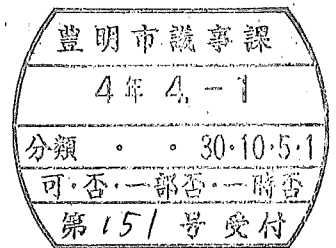 豊明市議事課
4年4.-1
分類 ・ ・ 30・10・5・1
可・否・一部否・一時否
第151号受付